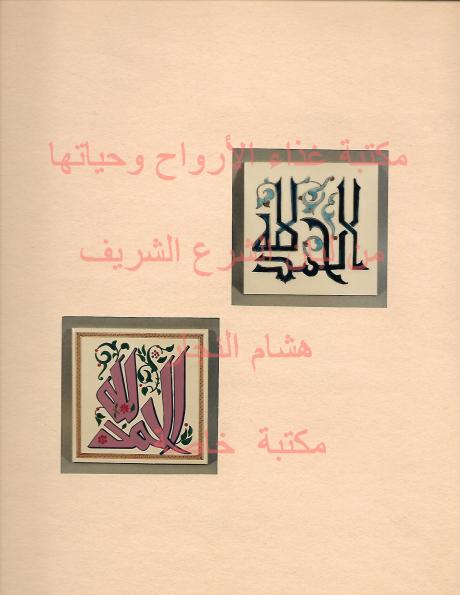 مكتبة غذاء الأرواح وحياتها
الحمد لله
من لبن الشرع الشريف
هشام النجار
الحمد لله
مكتبة خاصة